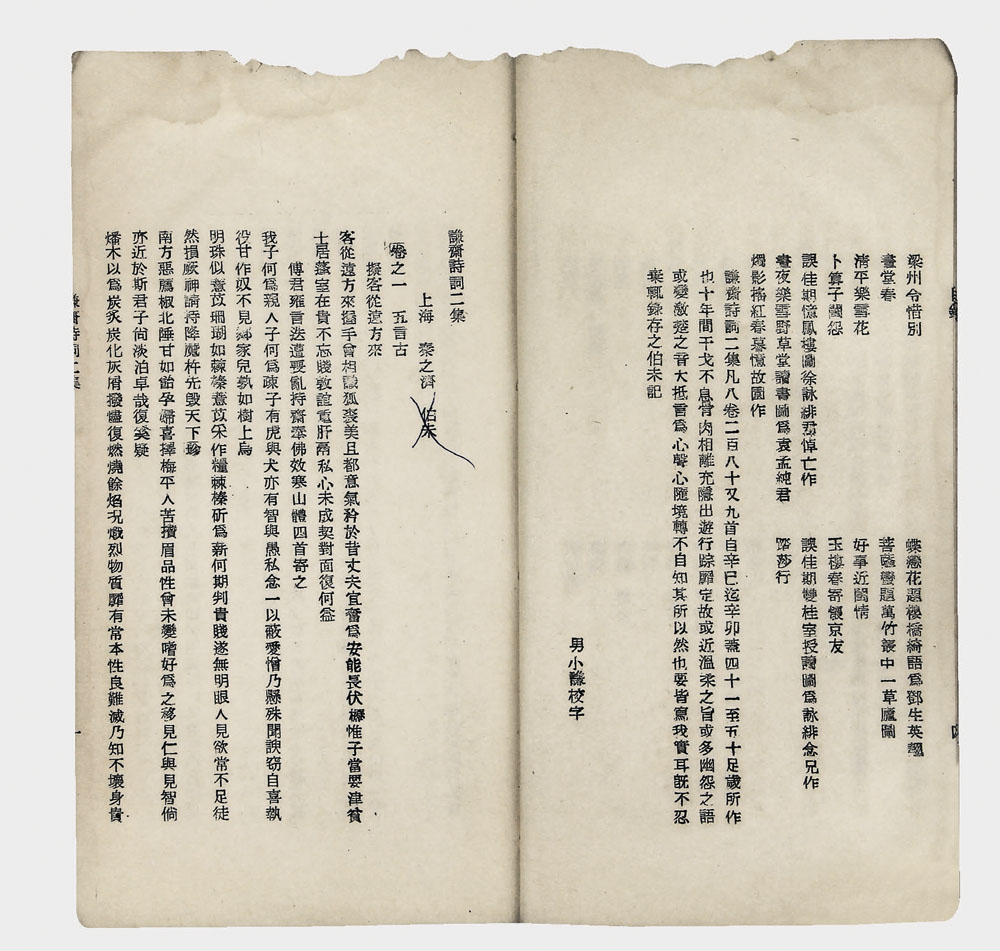 梁州令惜別
蝶戀花題樓橋綺語爲鄧生英翹
畫堂春
菩薩蠻題萬竹叢中一草廬圖
清平樂雪花
好事近閨情
卜算子閨怨
玉樓春寄懷京友
誤佳期憶鳳樓圖徐詠緋君悼亡作
誤佳期雙桂室授讀圖爲詠緋念兄作
晝夜樂雪野草堂讀書圖爲袁孟純君
踏莎行
燭影搖紅春暮憶故園作
謙齋詩詞二集凡八卷二百八十又九首自辛巳迄辛卯蓋四十一至五十足歲所作
也十年間干戈不息骨肉相離充隱出遊行踪靡定故或近溫柔之旨或多幽怨之語
或變敖蹙之音大抵言爲心聲心隨境轉不自知其所以然也要皆寫我實耳旣不忍
棄輒錄存之伯未記
男小謙校字
謙齋詩詞二集
上海 秦之濟 伯未
卷之一 五言古
擬客從遠方來
客從遠方來攜手曾相識狐裘美且都意氣矜於昔丈夫宜奮爲安能長伏櫪惟子當要津貧
士居蓬室在貴不忘賤敦誼電肝鬲私心未成契對面復何益
傅君雍言迭遭喪亂持齋奉佛效寒山體四首寄之
我子何爲親人子何爲疎子有虎與犬亦有智與愚私念一以蔽愛憎乃懸殊聞諛竊自喜執
役甘作奴不見鄰家兒孰如樹上烏
明珠似薏苡珊瑚如棘榛薏苡采作糧棘榛斫爲薪何期判貴賤遂無明眼人見欲常不足徒
然損厥神請持降魔杵先毀天下珍
南方惡薦椒北陲甘如飴孕婦喜擇梅平人苦攢眉品性曾未變嗜好爲之移見仁與見智倘
亦近於斯君子尚淡泊卓哉復奚疑
燔木以爲炭炙炭化灰屑撥燼復燃燒餘焰况熾烈物質靡有常本性良難滅乃知不壞身貴
謙齋詩詞二集
一